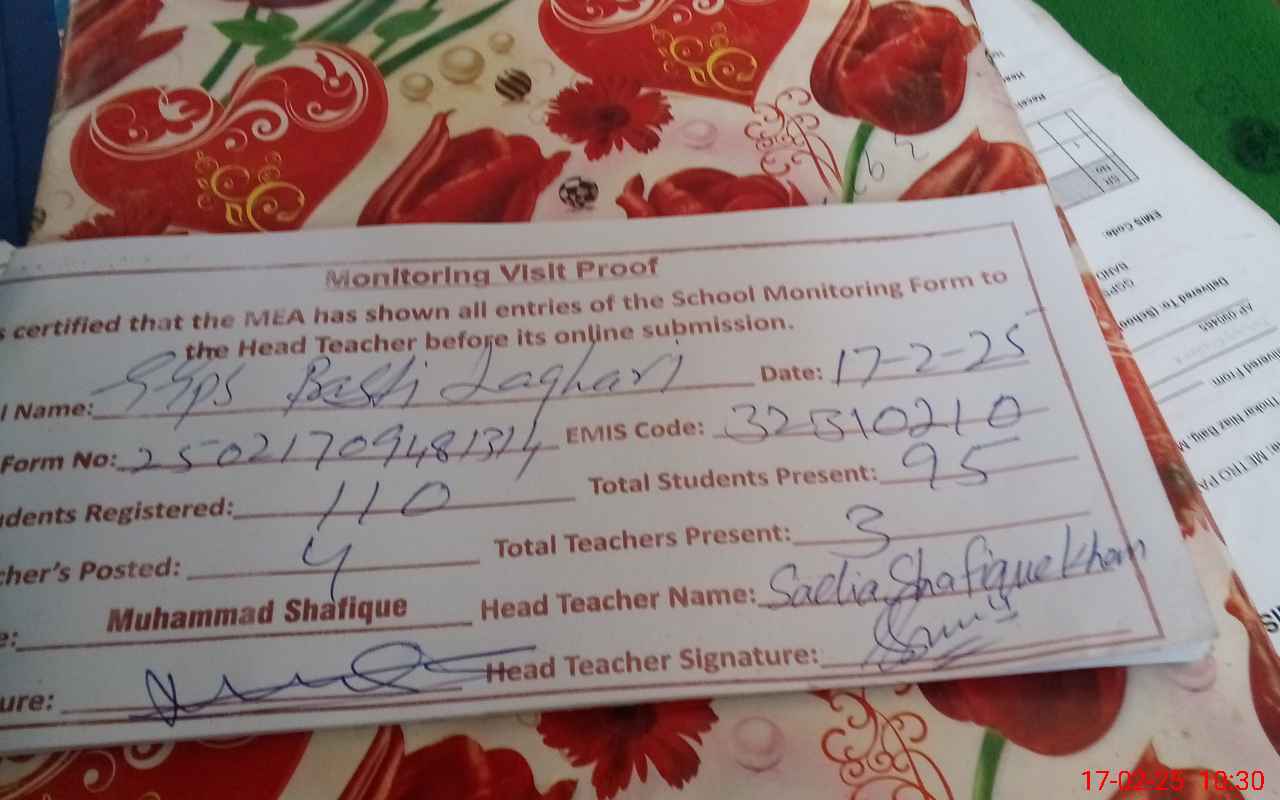 Monitoring Visit Proof
s certified that the MEA has shown all entries of the School Monitoring Form to
the Head Teacher before its online submission.
l Name: GGPS Basti Laghari Date: 17-2-25
Form No: 25021709481314 EMIS Code: 32310210
dents Registered: 110 Total Students Present: 95
cher's Posted: 4 Total Teachers Present: 3
e: Muhammad Shafique Head Teacher Name: Sadia Shafique Khan
ure: Head Teacher Signature:
SR No.
EMIS Code:
GGPS
Delivered To: (Schoo
AP 090465
vered From
Thokar Niaz Baig M
METRO PA
17-02-25 10:30